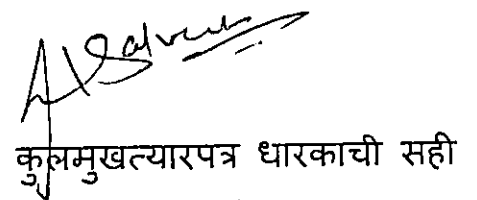 कुलमुखत्यारपत्र धारकाची सही